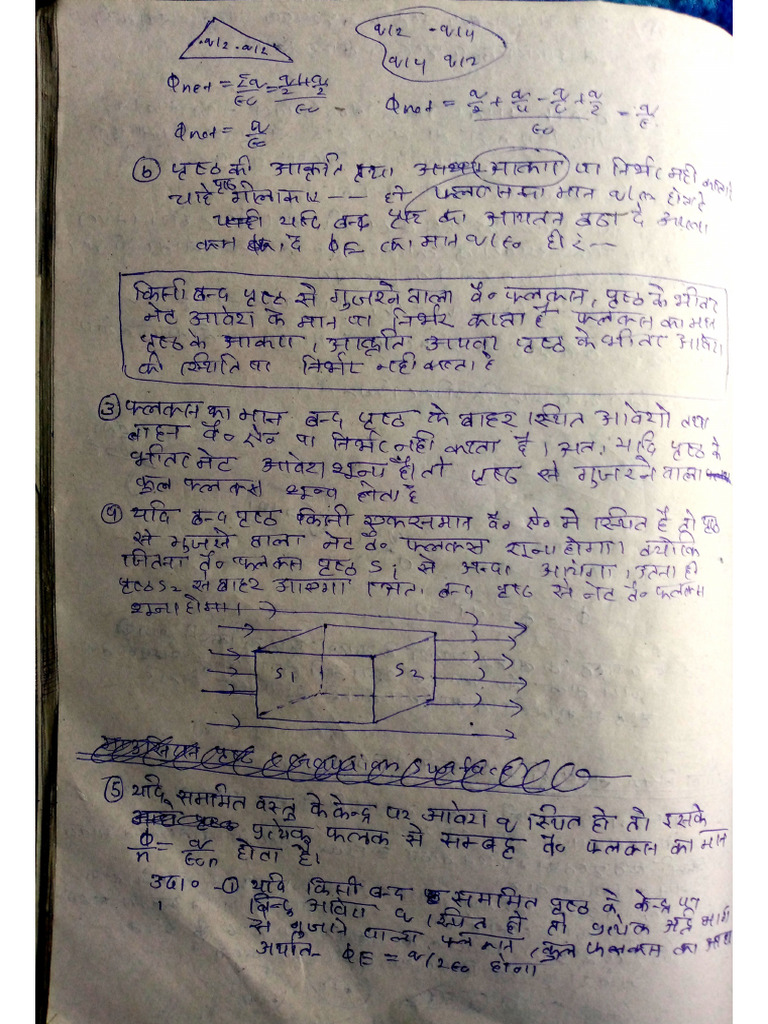 q/2 - q/4
q/2 . q/2
q/4 q/2
Φnet = Σq/ε0 = q/2 + q/2 / ε0
Φnet = q/2 + q/4 - q/4 + q/2 / ε0 = q/ε
Φnet = q/ε0
(b) पृष्ठ की आकृति तथा आकार पर निर्भर नही करता है
चाहे पृष्ठ गोलाकार --- हो फ्लक्स का मान q/ε0 होता है
यदि बन्द पृष्ठ का आयतन बढा दे अथवा
कम कर दे ΦE का मान q/ε0 ही है --
किसी बन्द पृष्ठ से गुजरने वाला वै० फ्लक्स, पृष्ठ के भीतर
नेट आवेश के मान पर निर्भर करता है फ्लक्स का मान
पृष्ठ के आकार, आकृति अथवा पृष्ठ के भीतर आवेश
की स्थिति पर निर्भर नही करता है
(3) फ्लक्स का मान बन्द पृष्ठ के बाहर स्थित आवेशो तथा
बाहय वै० क्षे० पर निर्भर नही करता है। अतः यदि पृष्ठ के
भीतर नेट आवेश शून्य है। तो पृष्ठ से गुजरने वाला
कुल फ्लक्स शून्य होता है
(4) यदि बन्द पृष्ठ किसी एकसमान वै० क्षे० मे स्थित है तो पृष्ठ
से गुजरने वाला नेट वै० फ्लक्स शून्य होगा। क्योकि
जितना वै० फ्लक्स पृष्ठ S1 से अन्दर आयेगा, उतना ही
पृष्ठ S2 से बाहर आएगा अतः बन्द पृष्ठ से नेट वै० फ्लक्स
शून्य होगा।
S1 S2
(5) यदि समामित वस्तु के केन्द्र पर आवेश q स्थित हो तो इसके
प्रत्येक फलक से सम्बद्ध वै० फ्लक्स का मान
Φ/n = q/ε0n होता है।
उदा० -① यदि किसी बन्द समामित पृष्ठ के केन्द्र पर
बिन्दु आवेश q स्थित हो तो प्रत्येक अर्द्ध भाग
से गुजरने वाला फ्लक्स, कुल फ्लक्स का आधा
अर्थात- ΦE = q/2ε0 होगा